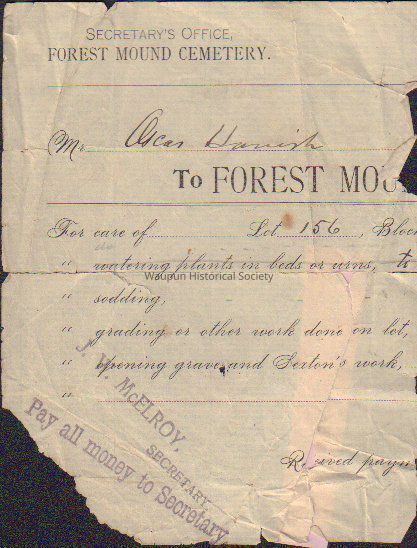 SECRETARY'S OFFICE,
FOREST MOUND CEMETERY.
Mr Oscar
To FOREST MOU
For care of Lot 156, Block
" watering plants in beds or urns,
Waupun Historical Society
" sodding,
" grading or other work done on lot,
" opening grave and Sexton's work,
"
J. W. McELROY,
SECRETARY
Pay all money to Secretary
Received paym